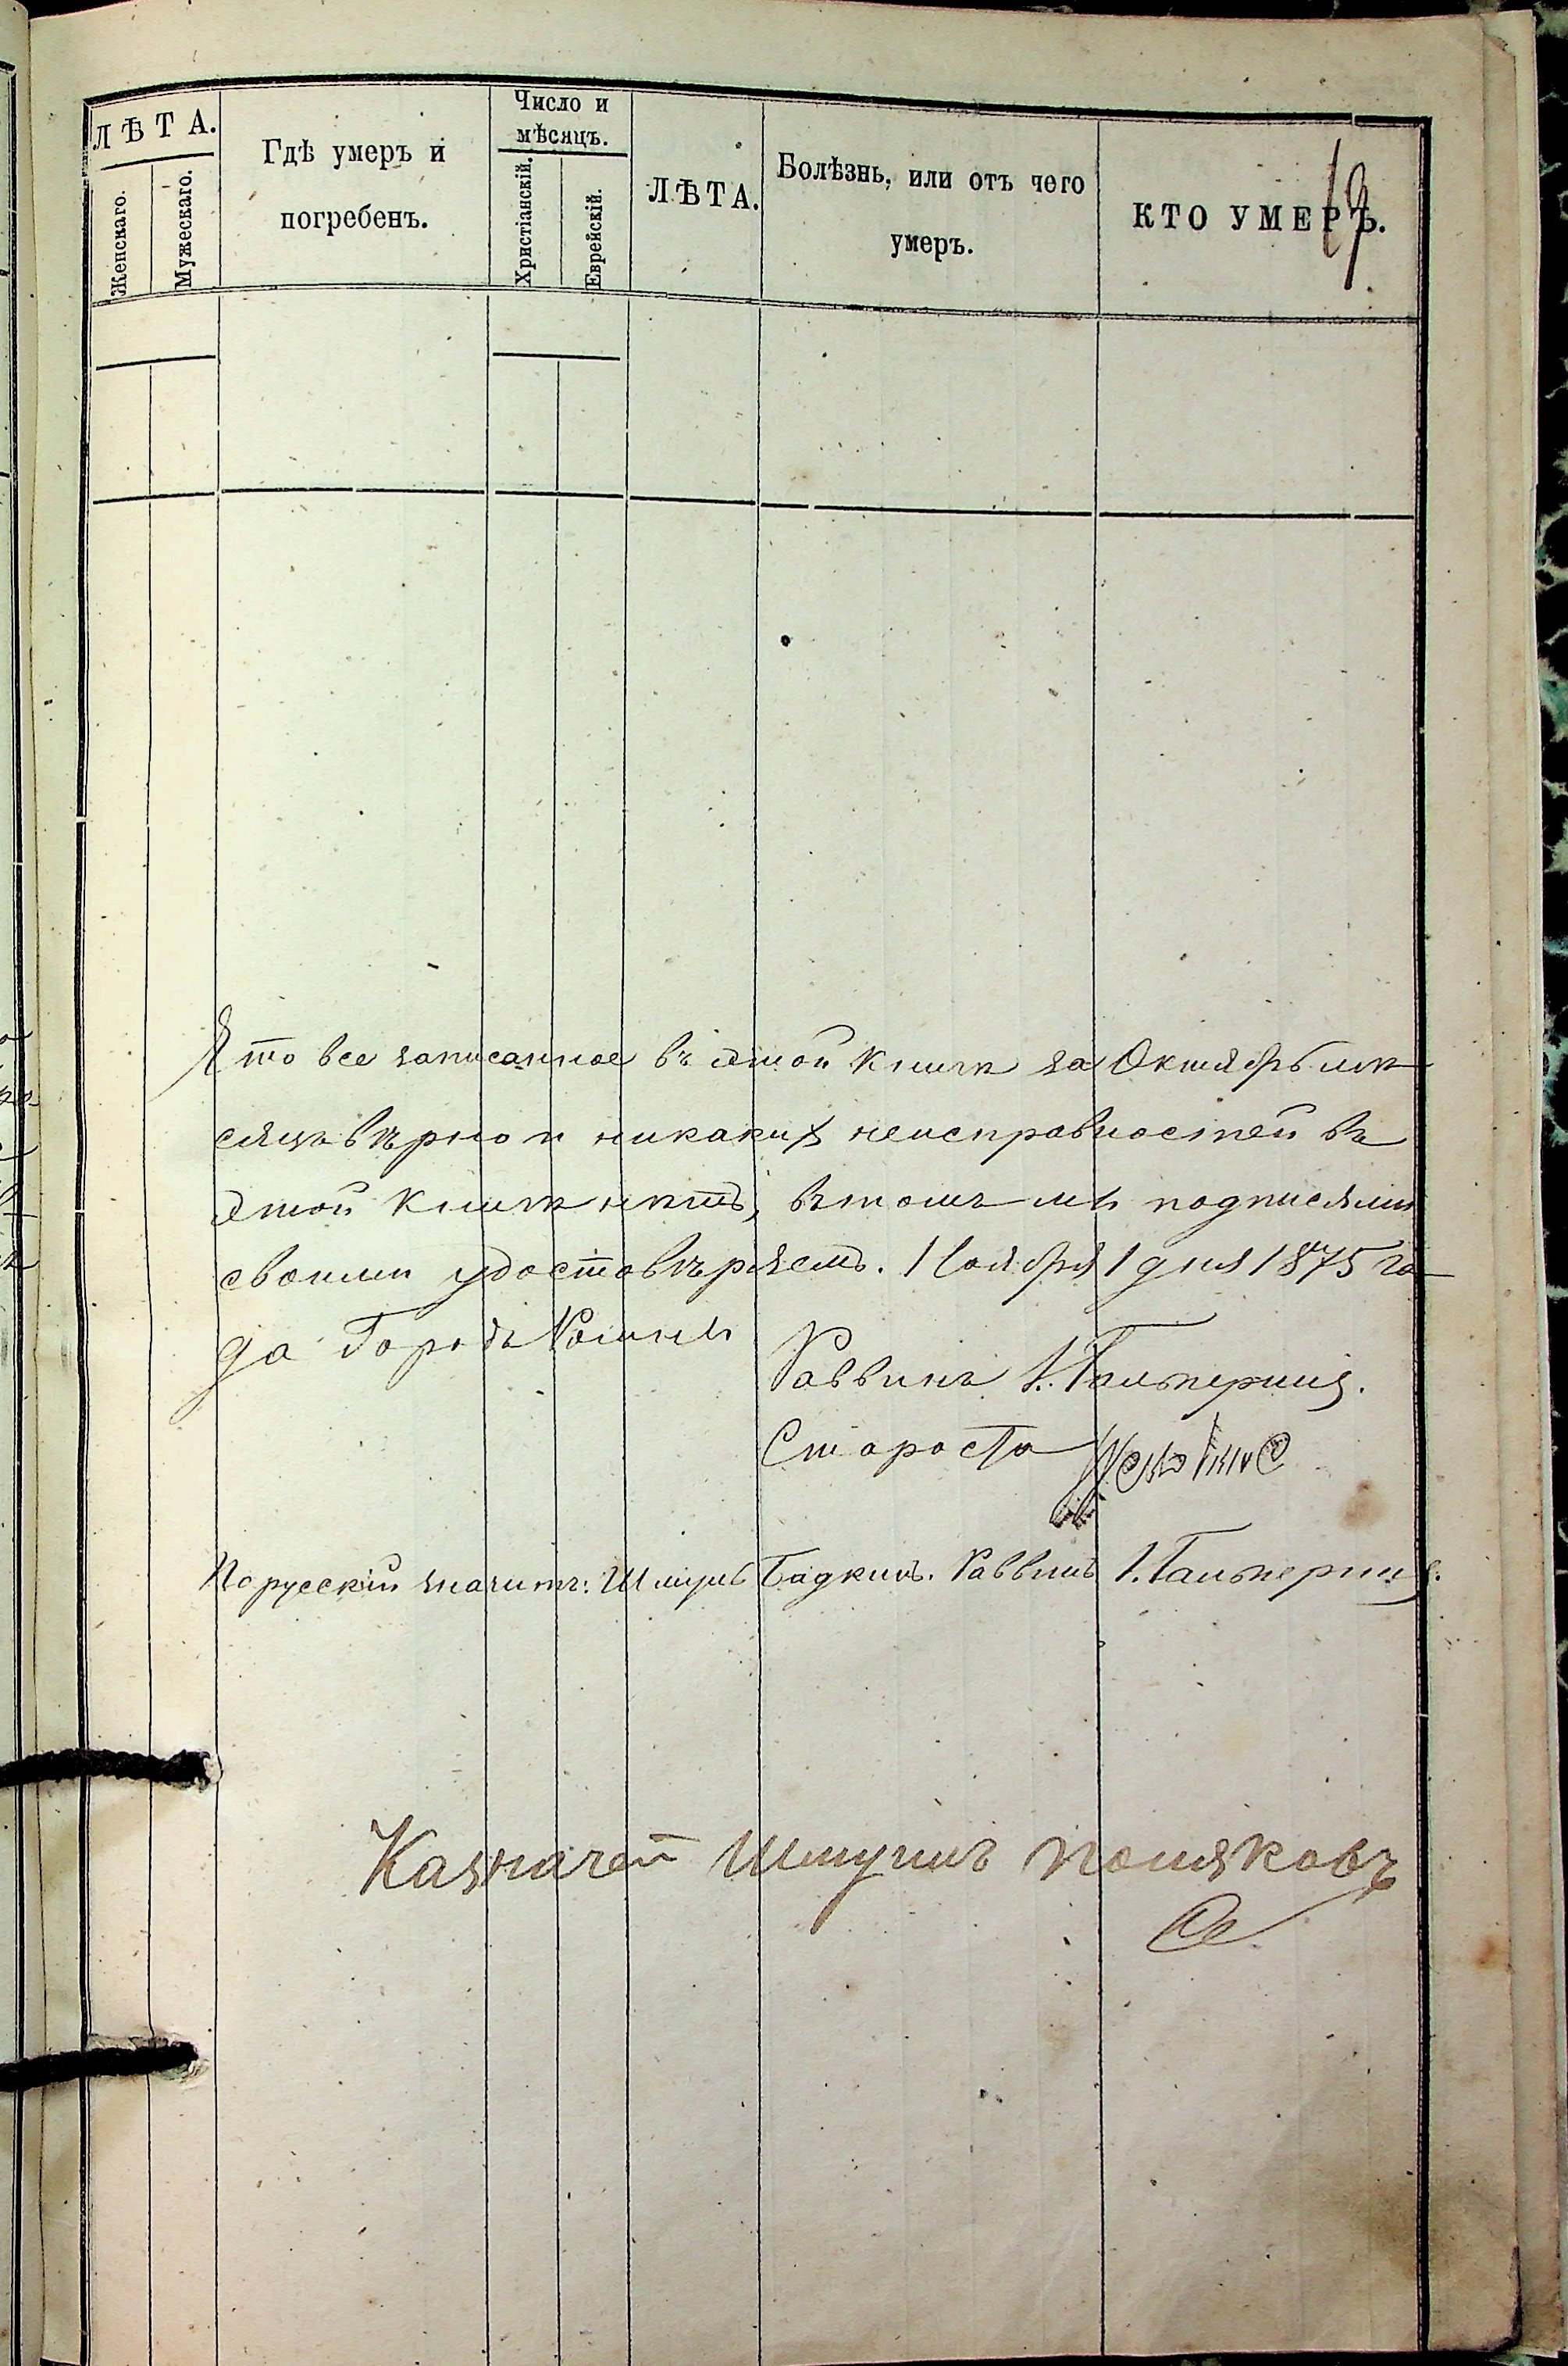 ЛѢТА.
Женскаго.
Мужескаго.
Гдѣ умеръ и
погребенъ.
Число и
мѣсяцъ.
Христіанскій.
Еврейскій.
ЛѢТА.
Болѣзнь, или отъ чего
умеръ.
КТО УМЕРЪ.
19
Что все записанное въ этой Книгѣ за Октябрь мѣ
сяцъ вѣрно и никаких неисправностей въ
этой Книгѣ нѣтъ, въ томъ мы подписями
своими удостовѣряемъ. Ноября 1 дня 1875 го
да Городъ Ромны
Раввинъ І. Гальперинъ.
Староста
По русский значитъ: Шмуль Бадкинъ. Раввинъ І. Гальперинъ.
Казначей Шмуилъ Поляковъ